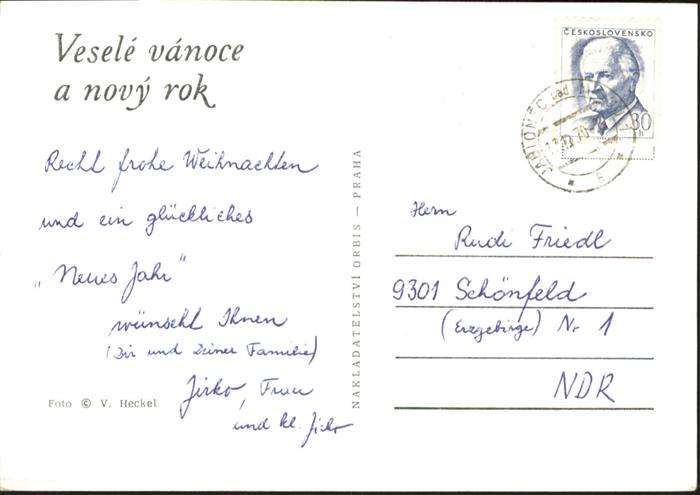 Veselé vánoce
a nový rok
Recht frohe Weihnachten
und ein glückliches
„Neues Jahr"
wünscht Ihnen
(Dir und Deiner Familie)
Jirko, Frau
und kl. Jirko
Foto © V. Heckel
NAKLADATELSTVÍ ORBIS — PRAHA
ČESKOSLOVENSKO
30
JABLONEC nad
Herrn
Rudi Friedl
9301 Schönfeld
(Erzgebirge) Nr 1
NDR